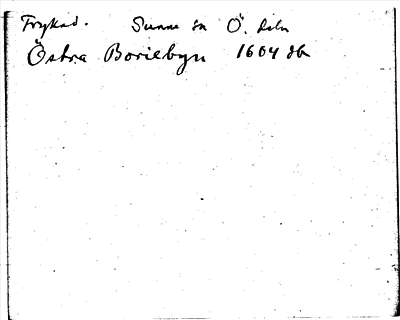 Fryksd. Sunne sn Ö. deln
Östra Boriebyn 1604 jb